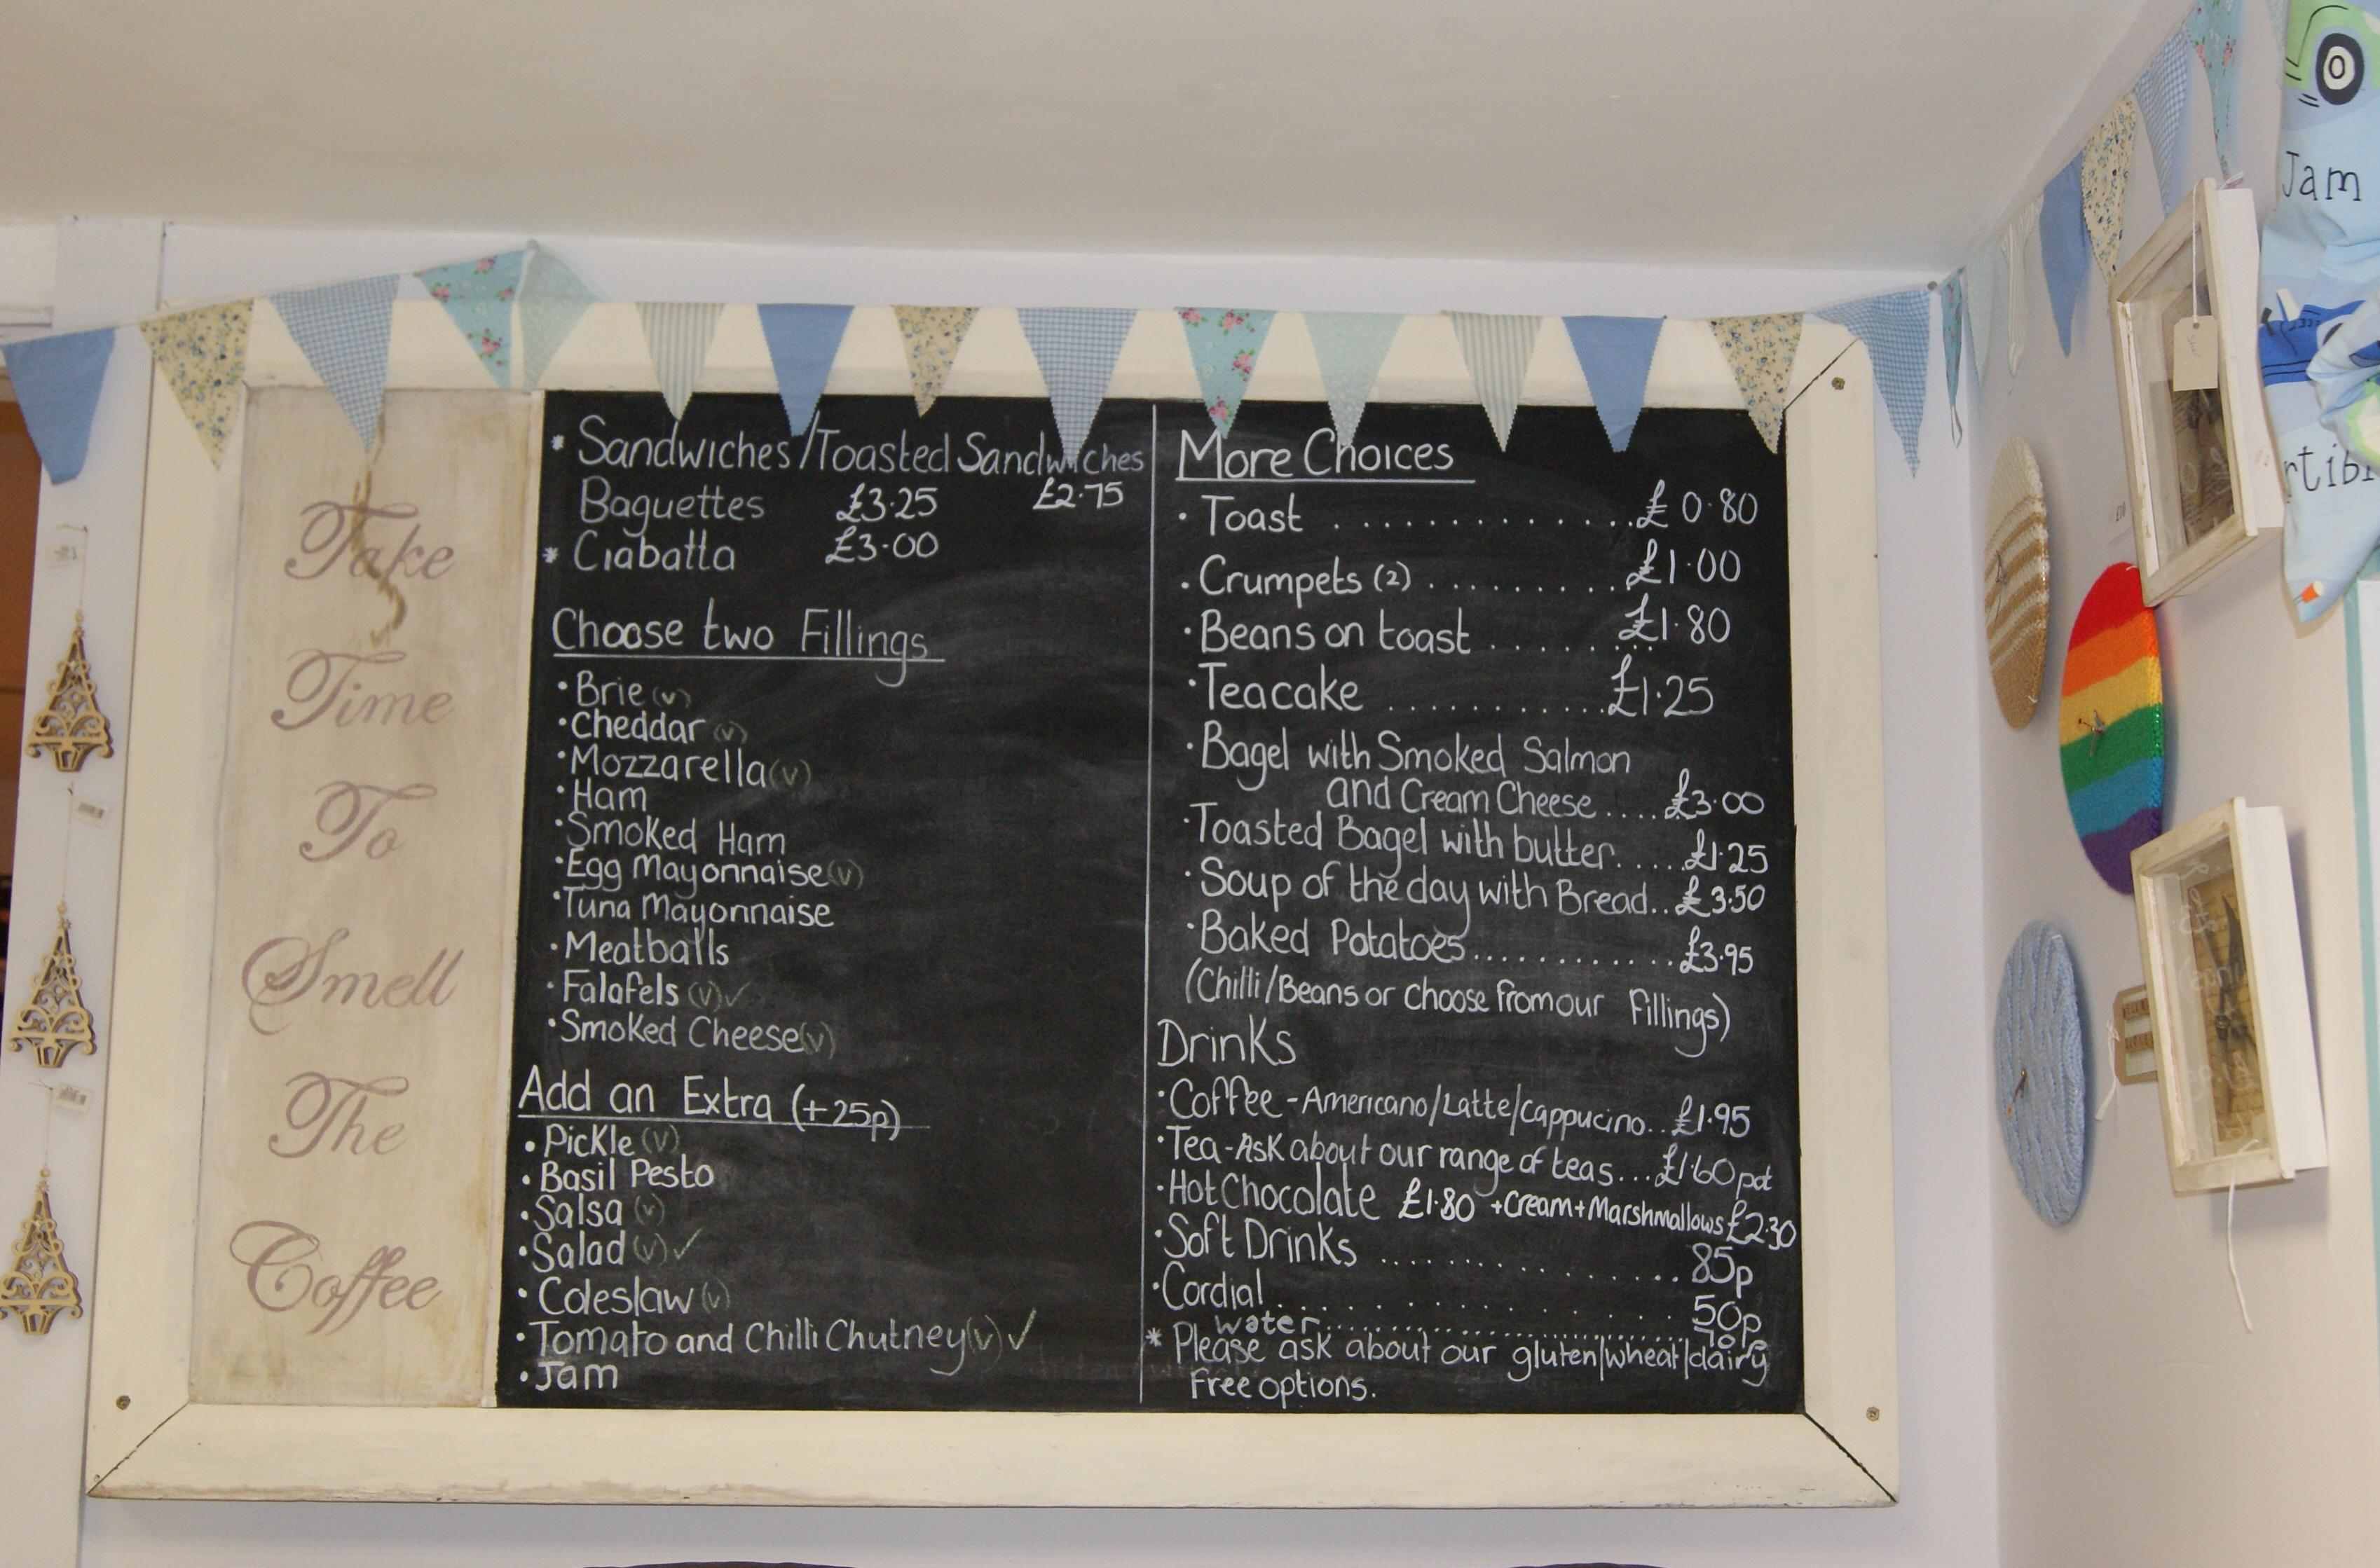 Take
Time
To
Smell
The
Coffee
* Sandwiches/Toasted Sandwiches
£2.75
Baguettes £3.25
* Ciabatta £3.00
Choose two Fillings
• Brie (v)
• Cheddar (v)
• Mozzarella (v)
• Ham
• Smoked Ham
• Egg Mayonnaise (v)
• Tuna Mayonnaise
• Meatballs
• Falafels (v) ✓
• Smoked Cheese (v)
Add an Extra (+25p)
• Pickle (v)
• Basil Pesto
• Salsa (v)
• Salad (v) ✓
• Coleslaw (v)
• Tomato and Chilli Chutney (v) ✓
• Jam
More Choices
• Toast .............. £0.80
• Crumpets (2) .......... £1.00
• Beans on toast ......... £1.80
• Teacake ........... £1.25
• Bagel with Smoked Salmon
and Cream Cheese ..... £3.00
• Toasted Bagel with butter..... £1.25
• Soup of the day with Bread.. £3.50
• Baked Potatoes............ £3.95
(Chilli/Beans or Choose from our Fillings)
Drinks
• Coffee - Americano/Latte/Cappucino.. £1.95
• Tea - Ask about our range of teas... £1.60 pot
• Hot Chocolate £1.80 + Cream + Marshmallows £2.30
• Soft Drinks .............. 85p
• Cordial .............. 50p
water.............................. 70p
* Please ask about our gluten/wheat/dairy
free options.
Jam